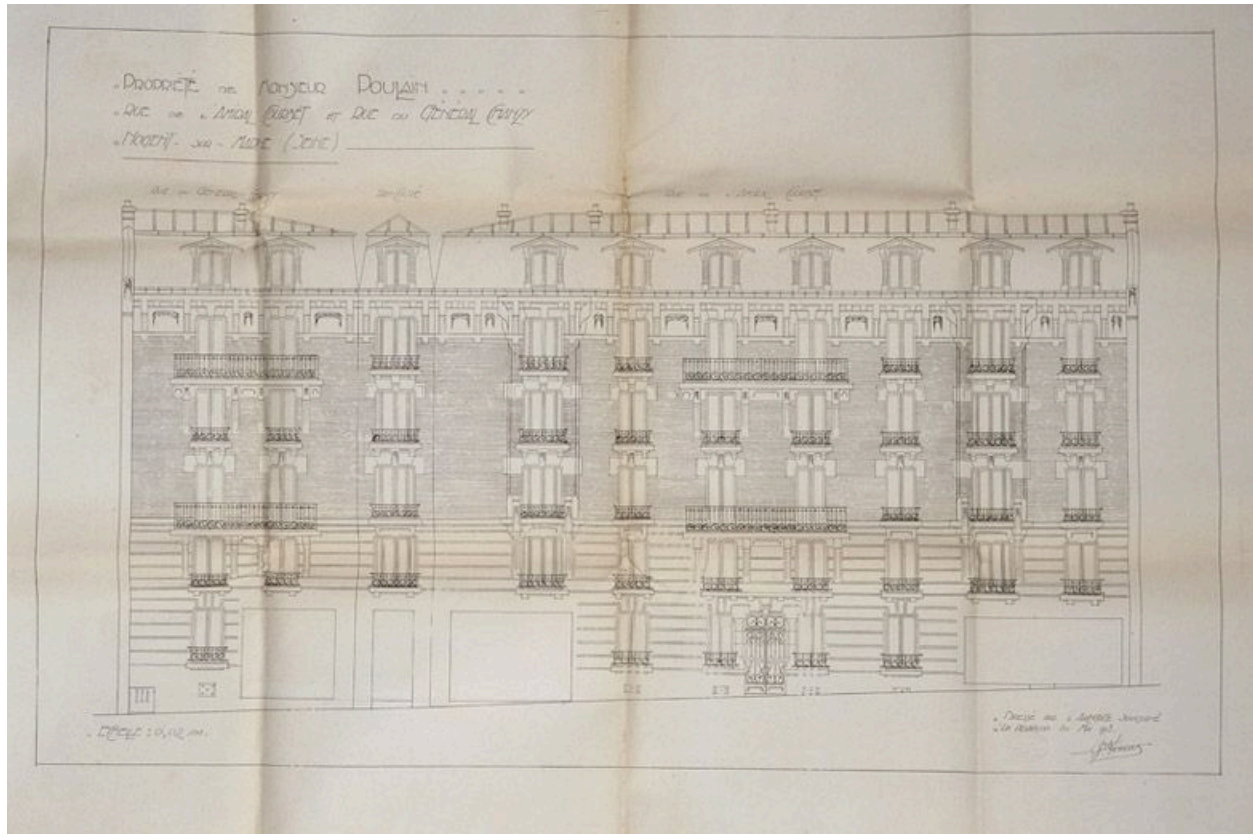 PROPRIÉTÉ DE MONSIEUR POULAIN . . . . .
RUE DE L'AMIRAL COURBET ET RUE DU GÉNÉRAL CHANZY
NOGENT - SUR - MARNE (SEINE)
RUE DU GÉNÉRAL CHANZY
RUE DE L'AMIRAL COURBET
ECHELLE :
DRESSÉ PAR L'ARCHITECTE SOUSSIGNÉ